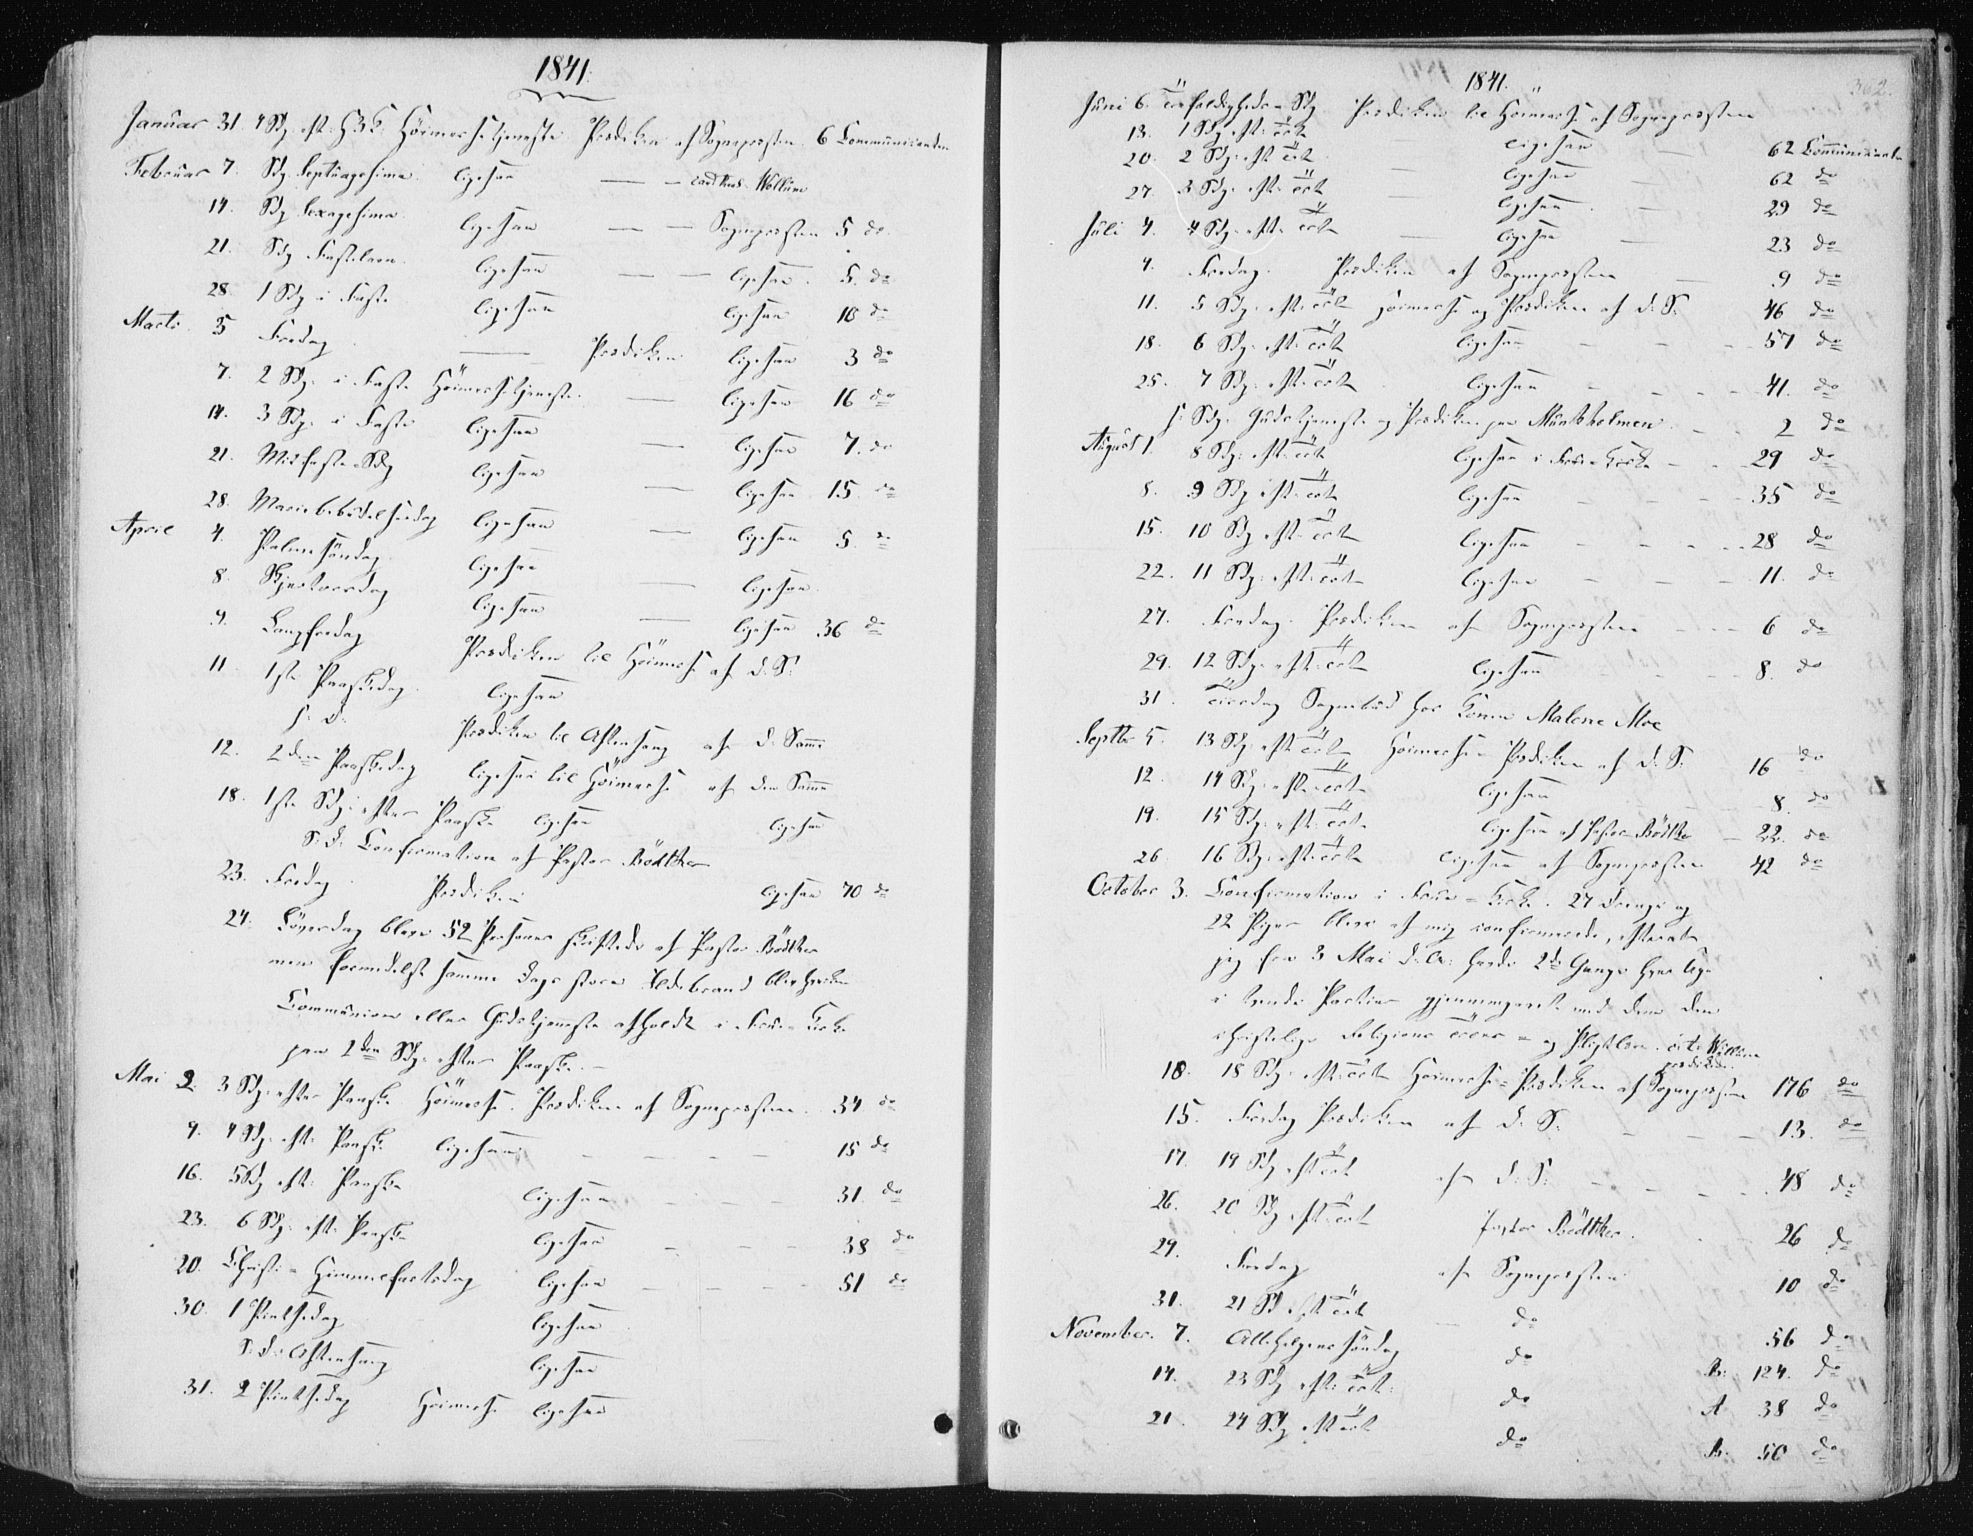 1841.
Januar 31. 4 Sdg. eft. H3K. Höimessetjeneste Prediken af Sognepresten 6 Communicanter
Februar 7. Sdg. Septuagesima. ligesaa — — Cand. Wullum
14. Sdg. Sexagesima. ligesaa — — Sognepresten 5 do
21. Sdg Fastelavn. ligesaa — — ligesaa. 5. do
28. 1 Sdg i Faste ligesaa ligesaa 10 do
Marts. 5 Fredag. — Prediken ligesaa 3 do
7. 2 Sdg. i Faste Höimessetjeneste. — ligesaa 16 do
14. 3 Sdg. i Faste ligesaa — ligesaa 7. do
21. Midfaste Sdg ligesaa — ligesaa 15. do
28. Mariebebudelsesdag ligesaa — ligesaa 5. do
April 4. Palmesöndag. ligesaa — ligesaa.
8. Skjertorsdag ligesaa — ligesaa 36 do
9. Langfredag Prediken til Höimesse af d. S.
11. 1ste Paaskedag. ligesaa
s. d. Prediken til Aftensang af d. Samme
12. 2den Paaskedag ligesaa til Höimesse af den Samme
18. 1ste Sdg. efter Paaske ligesaa ligesaa
S. d. Confirmation af Pastor Bödtker
23. Fredag. Prediken ligesaa 70 do
24. Löverdag bleve 52 Personer skriftede af Pastor Bödtker
men formedelst samme Dags store Ildebrand blev hverken
Communion eller Gudstjeneste afholdt i Frue Kirke
paa 2den Sdg. efter Paaske. –
Mai 2. 3 Sdg. efter Paaske Höimesse. Prediken af Sognepresten. 34 do
9. 4 Sdg. eft. Paaske ligesaa. – – – – 15 do
16. 5 Sdg eft. Paaske ligesaa – – – 31. do
23. 6 Sdg. eft. Paaske ligesaa – – – 38 do
20. Christi-Himmelfartsdag ligesaa – – – 51 do
30. 1 Pintsedag ligesaa
S. d. Aftensang ligesaa
31. 2 Pintsedag Höimesse ligesaa
1841. 362.
Juni 6. Trefoldigheds-Sdg Prediken til Höimesse af Sognepresten
13. 1 Sdg eft. Tri. ligesaa — 62 Communicanter
20. 2 Sdg. eft Tri. — ligesaa — 62 do
27. 3 Sdg. eft. Tri. — ligesaa. — 29 do
Juli 4. 4 Sdg. eft. Tri. — ligesaa — 23 do
9. Fredag. Prediken af Sognepresten — 9 do
11. 5 Sdg. eft. Tri. Höimesse og Prediken af d. S. 46 do
18. 6 Sdg. eft. Tri. ligesaa – – – 57 do
25. 7 Sdg. eft. Tri. ligesaa – – – 41. do
s Sdg. Gudstjeneste og Prediken paa Munkholmen. – – 2 do
August 1. 8 Sdg. eft. Tri. ligesaa i Frue Kirke – – 29 do
8. 9 Sdg eft. Tri. ligesaa – – – 35 do
15. 10 Sdg eft. Tri. ligesaa – – – 28 do
22. 11 Sdg. eft. Tri. ligesaa – – – 11. do
27. Fredag. Prediken af Sognepresten – – 6 do
29. 12 Sdg. eft. Tri. ligesaa – – – 8. do
31. Tirsdag Sognebud hos Konen Malene Moe
Septbr 5. 13 Sdg. eft. Tri. Höimesse-Prediken af d. S. 16 do
12. 14 Sdg. eft. Tri. ligesaa 8. do
19. 15 Sdg. eft. Tri. ligesaa af Pastor Bödtker – 22. do
26. 16 Sdg. eft. Tri. ligesaa af Sognepresten 42 do
October 3. Confirmation i Frue-Kirke. 27 Drenge og
22 Piger bleve af mig confirmerede, efterat
jeg fra 3 Mai havde 2de Gange hver Uge
i tvende Partier gjennemgaaet med dem den
christelige Religions Troes- og Pligtlære. Wullum
prediken.
10. 18 Sdg. eft. Tri. Höimesse-Prediken af Sognepresten 176 do
15. Fredag Prediken af d. S. – – – 13. do
17. 19 Sdg eft Tri. af d. S. – – – – 48 do
26. 20 Sdg eft. Tri. Pastor Bödtker. 26 do
29. Fredag af Sognepresten 10 do
31. 21 Sd eft Tri. — do 56 do
November. 7. Allehelgenssöndag do B. 124. do
14. 23 Sdg eft. Tri. do A 38 do
21. 24 Sdg eft Tri. do B. 50 do